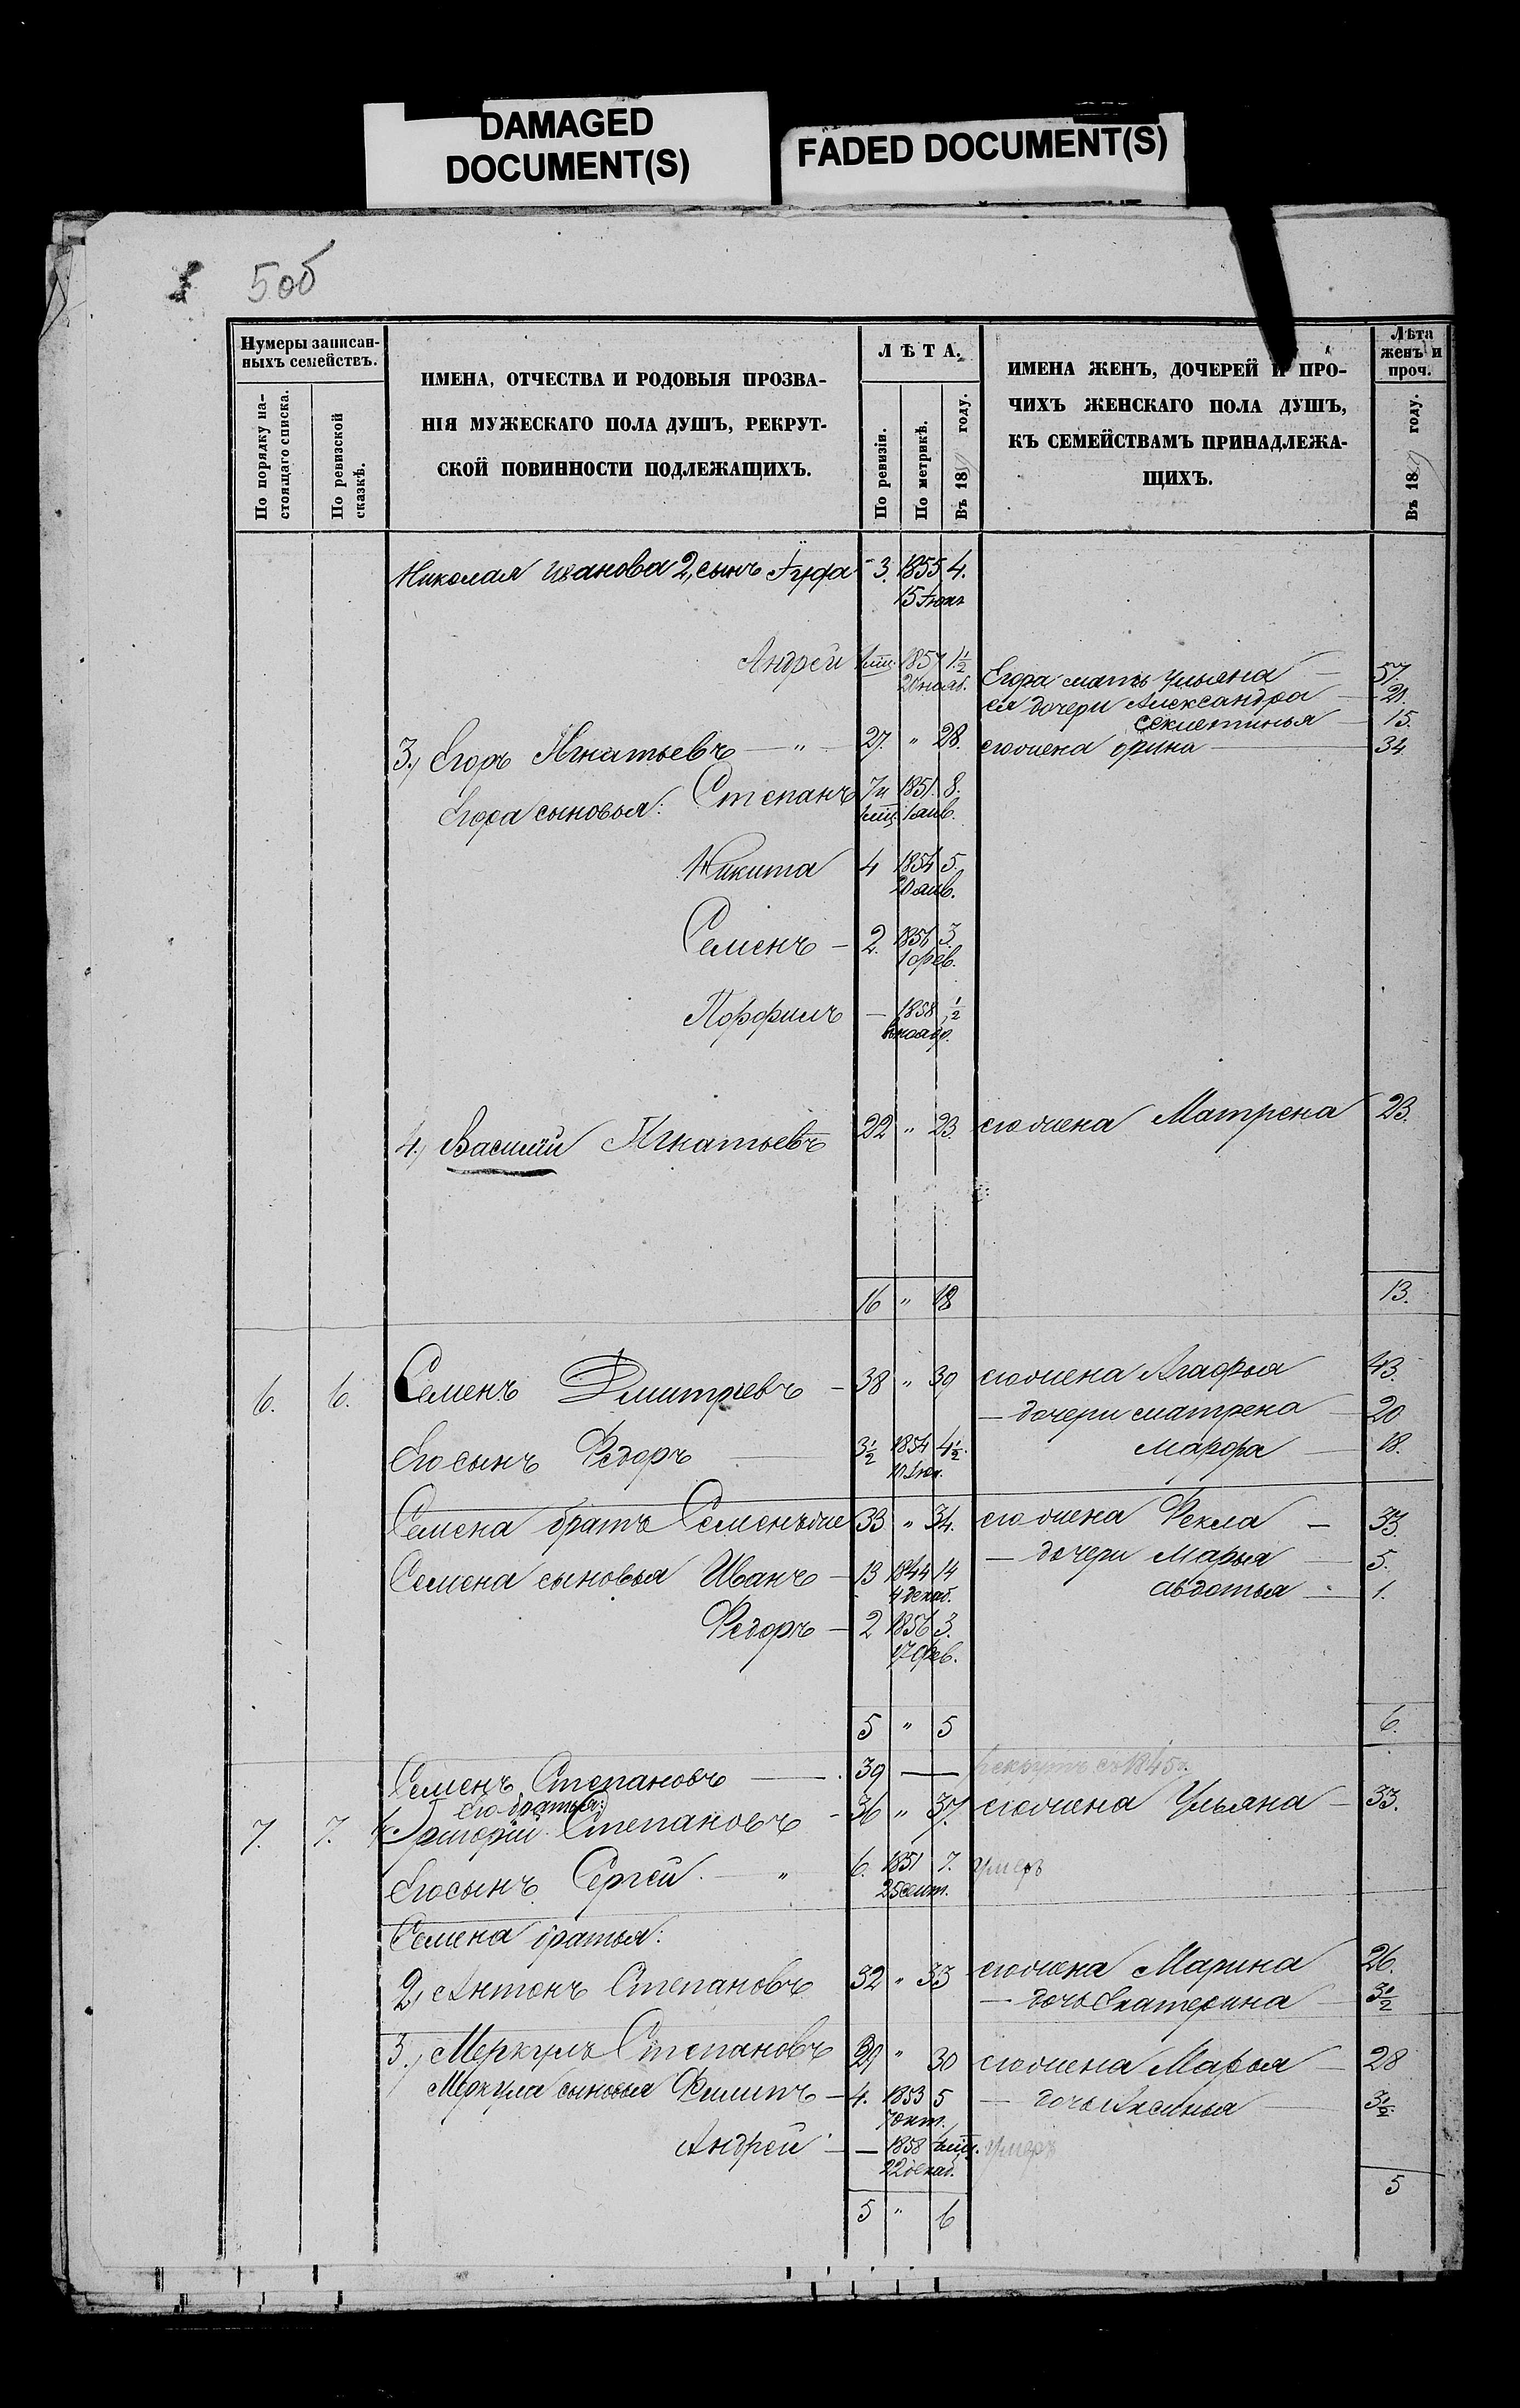 DAMAGED
DOCUMENT(S)
FADED DOCUMENT(S)
5об
Нумеры записан-
ныхъ семействъ.
По порядку на-
стоящаго списка.
По ревизской
сказкѣ.
ИМЕНА, ОТЧЕСТВА И РОДОВЫЯ ПРОЗВА-
НІЯ МУЖЕСКАГО ПОЛА ДУШЪ, РЕКРУТ-
СКОЙ ПОВИННОСТИ ПОДЛЕЖАЩИХЪ.
ЛѢТА.
По ревизіи.
По метрикѣ.
Въ 18 году.
ИМЕНА ЖЕНЪ, ДОЧЕРЕЙ И ПРО-
ЧИХЪ ЖЕНСКАГО ПОЛА ДУШЪ,
КЪ СЕМЕЙСТВАМЪ ПРИНАДЛЕЖА-
ЩИХЪ.
Лѣта
женъ и
проч.
Въ 18 году.
Николая Иванова 2, сынъ 3. 1855 4.
15
Андрей 1857 1½
20 нояб.
Егора мать Ульяна 57.
ея дочери Александра 21.
Секлетинья 15.
3, Егоръ Игнатьевъ — " — 27. " 28. его жена Орина — 34
Егора сыновья: Степанъ 7 и 1851. 8.
1 мц. 1 анв.
Никита 4 1854 5.
20 анв.
Семенъ — 2. 1856 3.
1 фев.
Порфилъ — 1858 ½
нояб.
4, Василий Игнатьевъ 22 " 23 его жена Матрена 23.
16 " 18 13.
6. 6. Семенъ Дмитриевъ — 38 " 39 его жена Агафья 43.
— дочери Матрена 20
Его сынъ Федоръ — 3½ 1854 4½. Марфа — 18.
Семена братъ Семенъ же 33 " 34. его жена Фекла — 33.
— дочери Марья — 5.
Семена сыновья Иванъ — 13 1844 14 Авдотья — 1.
4 декаб.
Федоръ — 2 1856 3.
17 фев.
5 " 5 6.
Семенъ Степановъ — 39 — рекрутъ съ 1845 г.
его братья:
7. 7. Григорій Степановъ — 36 " 37. его жена Ульяна — 33.
Его сынъ Сергей — " 6. 1851 7. умеръ
25 сент.
Семена братья:
2, Антонъ Степановъ 32 " 33 его жена Марина 26.
— дочь Екатерина — 3½
3, Меркулъ Степановъ 29 " 30 его жена Марья — 28
Меркула сыновья Филипъ — 4. 1853 5 — дочь Аксинья — 3½.
7 окт.
Андрей — — 1858 умеръ
22 декаб.
5 " 6 5